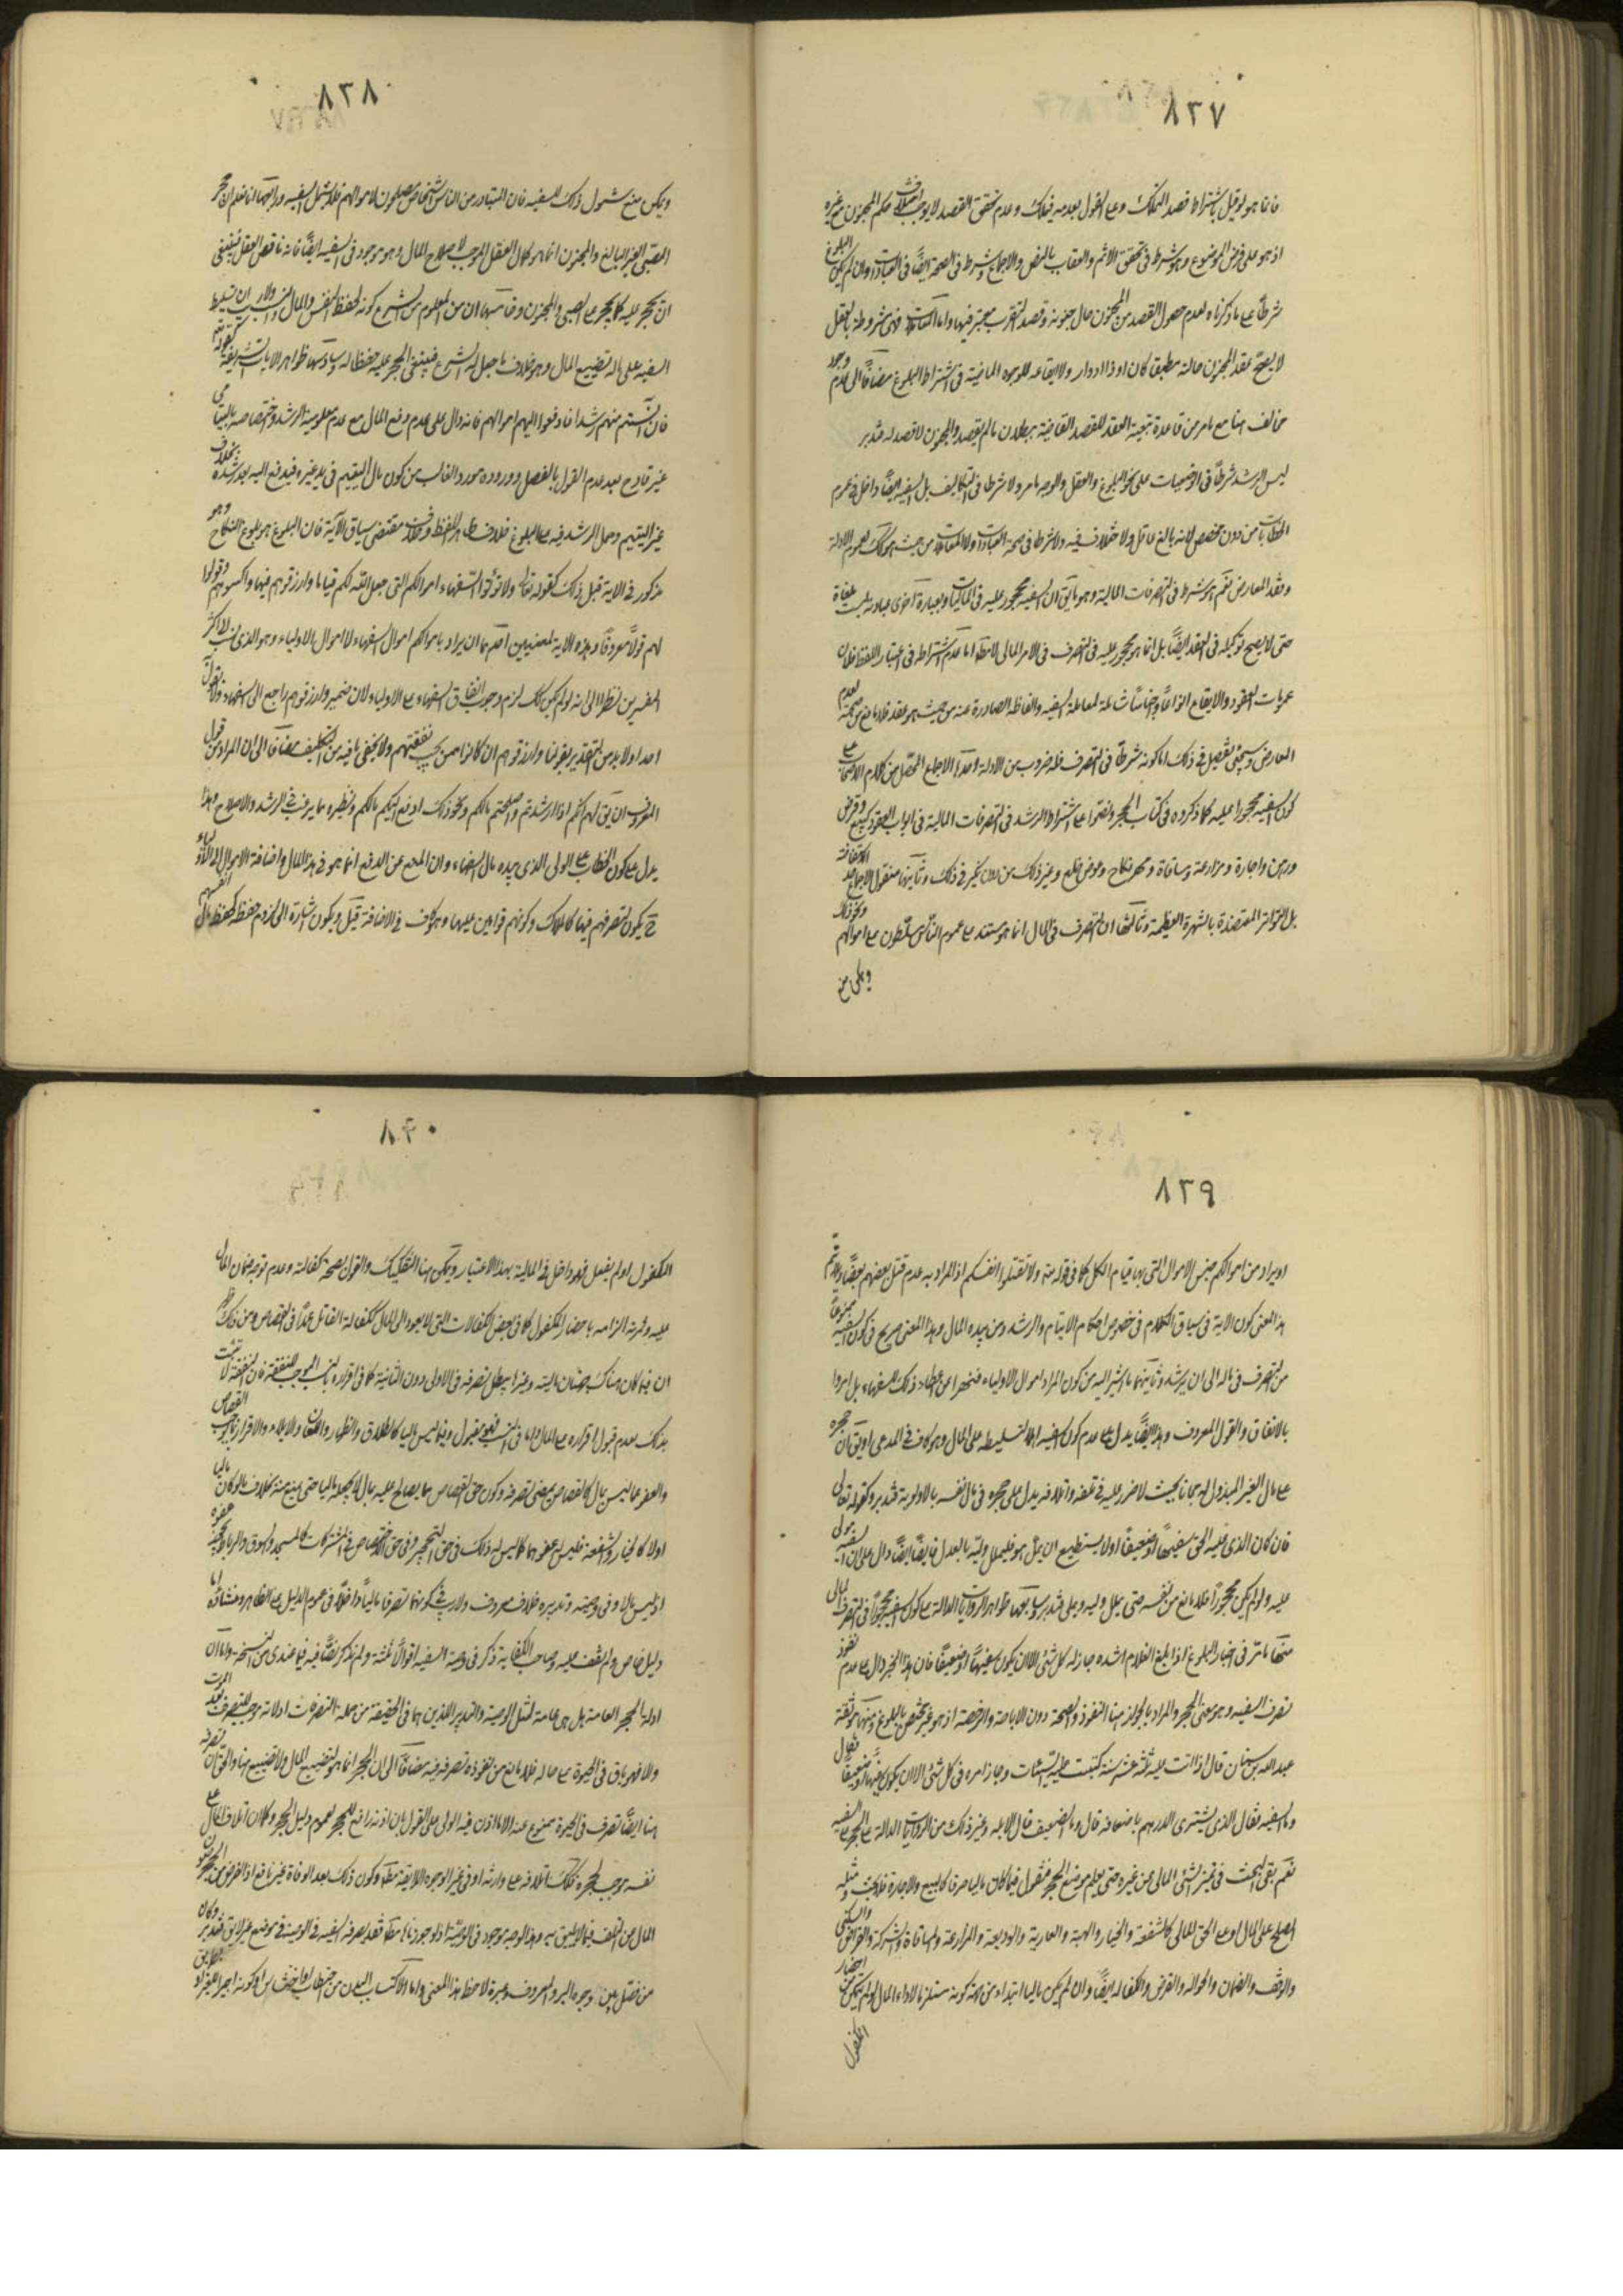 ٨٣٧
فانما هو لو قيل باشتراط قصد التملك وعلى القول بعدمه فيملك وعدم تحقق القصد لا يوجب حكم المجنون مع غيره
اذ هو على فرض الموضوع وهو شرط في تحقق الاثم والعقاب بالنص والاجماع وشرط في الصحة ايضًا في العبادات وان لم يكن البلوغ
شرطًا على ما ذكرنا ولعدم حصول القصد من المجنون حال جنونه وقصد التقرب معتبر فيها واما المعاملات فهي مشروطة بالعقل
لا يصح عقد المجنون حالة مطبقا كان او ذا ادوار ولا ايقاعه للوجوه الماضية في اشتراط البلوغ مضافًا الى عدم وجود
مخالف هنا مع ما مر من قاعدة تبعية العقد للقصد القاضية ببطلان ما لم يقصد والمجنون لا قصد له فتدبر
ليس الرشد شرطًا في الوضعيات على نحو البلوغ والعقل والوجه ما مر ولا شرطا في التكاليف بل السفيه ايضًا داخل في عموم
الخطابات من دون مخصص لانه بالغ عاقل ولا خلاف فيه ولا شرطا في صحة العبادات ولا المعاملات من حيث هو كذلك لعموم الادلة
وفقد المعارض نعم هو شرط في التصرفات المالية وهو يأتي ان السفيه محجور عليه في الماليات وبعبارة اخرى عبارته ليست ملغاة
حتى لا يصح توكيله في العقد ايضًا بل انما هو محجور عليه في التصرف في الامر المالي لا مطلقا اما عدم اشتراطه في اعتبار اللفظ فلان
عمومات العقود والايقاع انواعًا واجناسًا شاملة لمعاملة السفيه والفاظه الصادرة عنه من حيث هو عقد فلا مانع من صحته لعدم
المعارض وسيجئ تفصيل في ذلك اما كونه شرطًا في التصرف فله ضروب من الادلة احدها الاجماع المحصل من كلام الاصحاب على
كون السفيه محجورا عليه كما ذكروه في كتاب الحجر ونصوا على اشتراط الرشد في التصرفات المالية في ابواب العقود كبيع وقرض
ورهن واجارة ومزارعة ومساقاة ومهر نكاح وعوض خلع وغير ذلك من دون نكير في ذلك وثانيها منقول الاجماع
بل التواتر المعتضدة بالشهرة العظيمة وثالثها ان التصرف في المال انما هو مستند على عموم الناس مسلطون على اموالهم ونحو ذلك
وعلى من
٨٣٨
ويمكن منع شمول ذلك للسفيه فان المتبادر من الناس اشخاص مصلحون لاموالهم فلا يشمل السفيه ورابعها انا نعلم ان حجر
الصبي الغير البالغ والمجنون انما هو لكمال العقل الموجب لاصلاح المال وهو موجود في السفيه ايضًا فانه ناقص العقل فينبغي
ان يحجر عليه كما يحجر على الصبي والمجنون وخامسها ان من المعلوم من الشرع كونه لحفظ النفس والمال والنسب ولا ريب ان تسليط
السفيه على ماله تضييع المال وهو خلاف ما جعل له الشرع فينبغي الحجر عليه حفظا له وسادسها ظواهر الايات الشريفة كقوله تعالى
فان آنستم منهم رشدا فادفعوا اليهم اموالهم فانه دال على عدم دفع المال مع عدم معلومية الرشد واختصاصه باليتامى
غير قادح بعد عدم القول بالفصل ووروده مورد الغالب من كون مال اليتيم في يد غيره فيدفع اليه بعد رشده بخلاف
غير اليتيم وحمل الرشد فيه على البلوغ خلاف ظاهر اللفظ وخلاف مقتضى سياق الآية فان البلوغ هو بلوغ النكاح وهو
مذكور في الاية قبل ذلك كقوله تعالى ولا تؤتوا السفهاء اموالكم التي جعل الله لكم قياما وارزقوهم فيها واكسوهم وقولوا
لهم قولاً معروفًا وهذه الاية لمعنيين احدهما ان يراد باموالكم اموال السفهاء لا اموال الاولياء وهو الذي نسب لاكثر
المفسرين نظرا الى انه لو لم يكن كذلك لزم وجوب انفاق السفهاء على الاولياء لان ضمير وارزقوهم راجع الى السفهاء ولا يقول
احد اولا بد من التقدير بقولنا وارزقوهم ان كانوا ممن يجب نفقتهم ولا يخفى ما فيه من التكليف مضافا الى ان المراد من قول
المعروف ان يقال لهم انكم اذا ارشدتم واصلحتم مالكم ونحو ذلك ادفع اليكم مالكم ونظيره مما يرغب في الرشد والاصلاح وهذا
يدل على كون الخطاب على الولي الذي بيده مال السفهاء وان المنع عن الدفع انما هو في هذا المال واضافة الاموال الى الاولياء
ح يكون لتصرفهم فيها كالملاك وكونهم قوامين عليها وهو كاف في الاضافة قيل ويكون اشارة الى لزوم حفظه كحفظ مال انفسهم
٨٣٩
او يراد من اموالكم جنس الاموال التي بها قيام الكل كما في قوله تعالى ولا تقتلوا انفسكم اذ المراد به عدم قتل بعضهم بعضًا
هذا المعنى كون الاية في سياق الكلام في خصوص احكام الايتام والرشد ومن بيده المال وهذا المعنى صريح في كون السفيه ممنوعًا
من التصرف في ماله الى ان يرشد وثانيهما ما اشير اليه من كون المراد اموال الاولياء فنهوا عن اعطاء ذلك السفهاء بل امروا
بالانفاق والقول المعروف وهذا ايضًا يدل على عدم كون السفيه اهلا لتسليطه على المال وهو كاف في المدعى او يقال ان حجره
على مال الغير المبذول له مجانا بحيث لا ضرر عليه في تلفه واتلافه يدل على حجره في مال نفسه بالاولوية فتدبر وكقوله تعالى
فان كان الذي عليه الحق سفيهًا او ضعيفًا او لا يستطيع ان يمل هو فليملل وليه بالعدل فانه ايضًا دال على ان السفيه مولى
عليه ولو لم يكن محجورًا فلا مانع من نفسه حتى يملل وليه وعلى فتدبر وسابعها ظواهر الروايات الدالة على كون السفيه محجورًا في التصرف المالي
منها ما مر في اخبار البلوغ اذا بلغ الغلام اشده جاز له كل شئ الا ان يكون سفيهًا او ضعيفًا فان هذا الخبر دال على عدم نفوذ
تصرف السفيه وهو معنى الحجر والمراد بالجواز هنا النفوذ والصحة دون الاباحة والرخصة اذ هو غير مختص بالبلوغ ومنها موثقة
عبد الله بن سنان قال اذا اتت عليه ثلثة عشر سنة كتبت عليه السيئات وجاز امره في كل شئ الا ان يكون سفيهًا او ضعيفًا فقال
وما السفيه فقال الذي يشترى الدرهم باضعافه قال وما الضعيف قال الابله وغير ذلك من الروايات الدالة على الحجر على السفيه
نعم بقى البحث في تميز الشئ المالي من غيره حتى يعلم موضع الحجر فنقول فيما كان ماليا صرفا كالبيع والاجارة فلا بحث ومثله
الصلح على المال او على الحق المالي كالشفعة والخيار والهبة والعارية والوديعة والمزارعة والمساقاة والشركة والقراض والسكنى
والوقف والضمان والحوالة والقرض والكفالة ايضًا وان لم يكن ماليا ابتداء من جهة كونه مستلزما لاداء المال لو لم يتمكن من احضار
المكفول
٨٤٠
المكفول او لم يفعل فهو داخل في المالية بهذا الاعتبار ويمكن هنا التفكيك والقول بصحة كفالته وعدم توجه ضمان المال
عليه وثمرته الزامه باحضار المكفول كما في بعض الكفالات التي لا يعود الى المال ككفالة القاتل عمدًا في القصاص ومن ذلك ظهر
ان فيما كان هناك ضمان البتة وغيره يبطل تصرفه في الاولى دون الثانية كما في اقراره بالنسب الموجب للنفقة فان النفقة لا تثبت
بذلك بعدم قبول اقراره على المال واما في النسب فهو مقبول وفيما ليس ماليا كالطلاق والظهار واللعان والايلاء والاقرار بما يوجب القصاص
والعفو عما ليس بمال كالقصاص يمضي تصرفه وكون حق القصاص مما يصالح عليه بمال لا يجعله ماليا حتى يمنع منه بخلاف ما لو كان ماليا
اولا كالخيار والشفعة فليس له عفوهما كما ليس له ذلك في حق التحجير وفي حق الاختصاص في المشتركات كالمسجد والسوق والرباط
اذ ليس مالا وفي وصيته وتدبيره خلاف معروف ولا ريب في كونهما تصرفا ماليًا داخلًا في عموم الدليل على الظاهر ومنشاؤه اما
دليل خاص ولم نقف عليه وصاحب الكفاية ذكر في وصية السفيه اقوالًا ثلثة ولم يذكر نصًا فيه فيما عندي من النسخة واما ان
ادلة الحجر العامة بل هي عامة لمثل الوصية والتدبير اللذين هما في الحقيقة من جملة التصرفات ادلانه يوجب التصرف بعد الموت
ولا فهو باق في الحيوة على حاله فلا مانع من نفوذه تصرفه فيه مضافًا الى ان الحجر انما هو لتضييع المال ولا تضييع هنا والحق ان تصرفه
هنا ايضًا تصرف في الحيوة ممنوع عنه الا ما اذن فيه الولي على القول بان اذنه رافع للحجر لعموم دليل الحجر وكما ان اتلاف المال على
نفسه يوجب الحجر فكذلك اتلافه على وارثه او في غير الوجوه الاليقة مطلقا وكون ذلك بعد الوفاة غير نافع اذ الغرض من الحجر صون
المال من التلف فيما لا يليق به وهذا الوجه موجود في الوصية اذ لو جوزناها مطلقا فقد يصرفه السفيه في الوصية في موضع غير لايق فتدبر وكان
من فصل بين وجوه البر والمعروف وغيره لاحظ هذا المعنى واما الاكتساب بالبدن من احتطاب واحتشاش او كونه اجيرا للغير